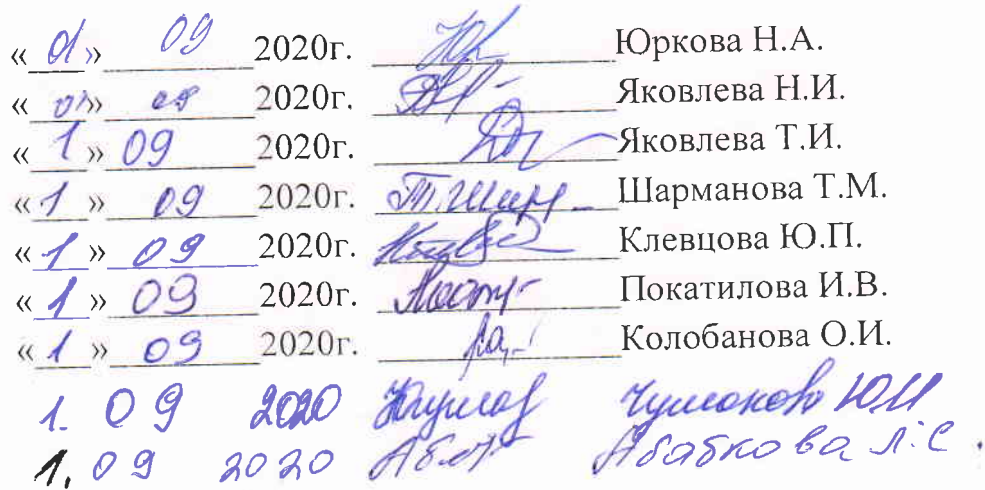 «01» 09 2020г. Юркова Н.А.
«01» 09 2020г. Яковлева Н.И.
«1» 09 2020г. Яковлева Т.И.
«1» 09 2020г. Т.Шарм Шарманова Т.М.
«1» 09 2020г. Клевцова Ю.П.
«1» 09 2020г. Покатилова И.В.
«1» 09 2020г. Колобанова О.И.
1. 09 2020 Ю.И
1. 09 2020 Абабкова Л.С.